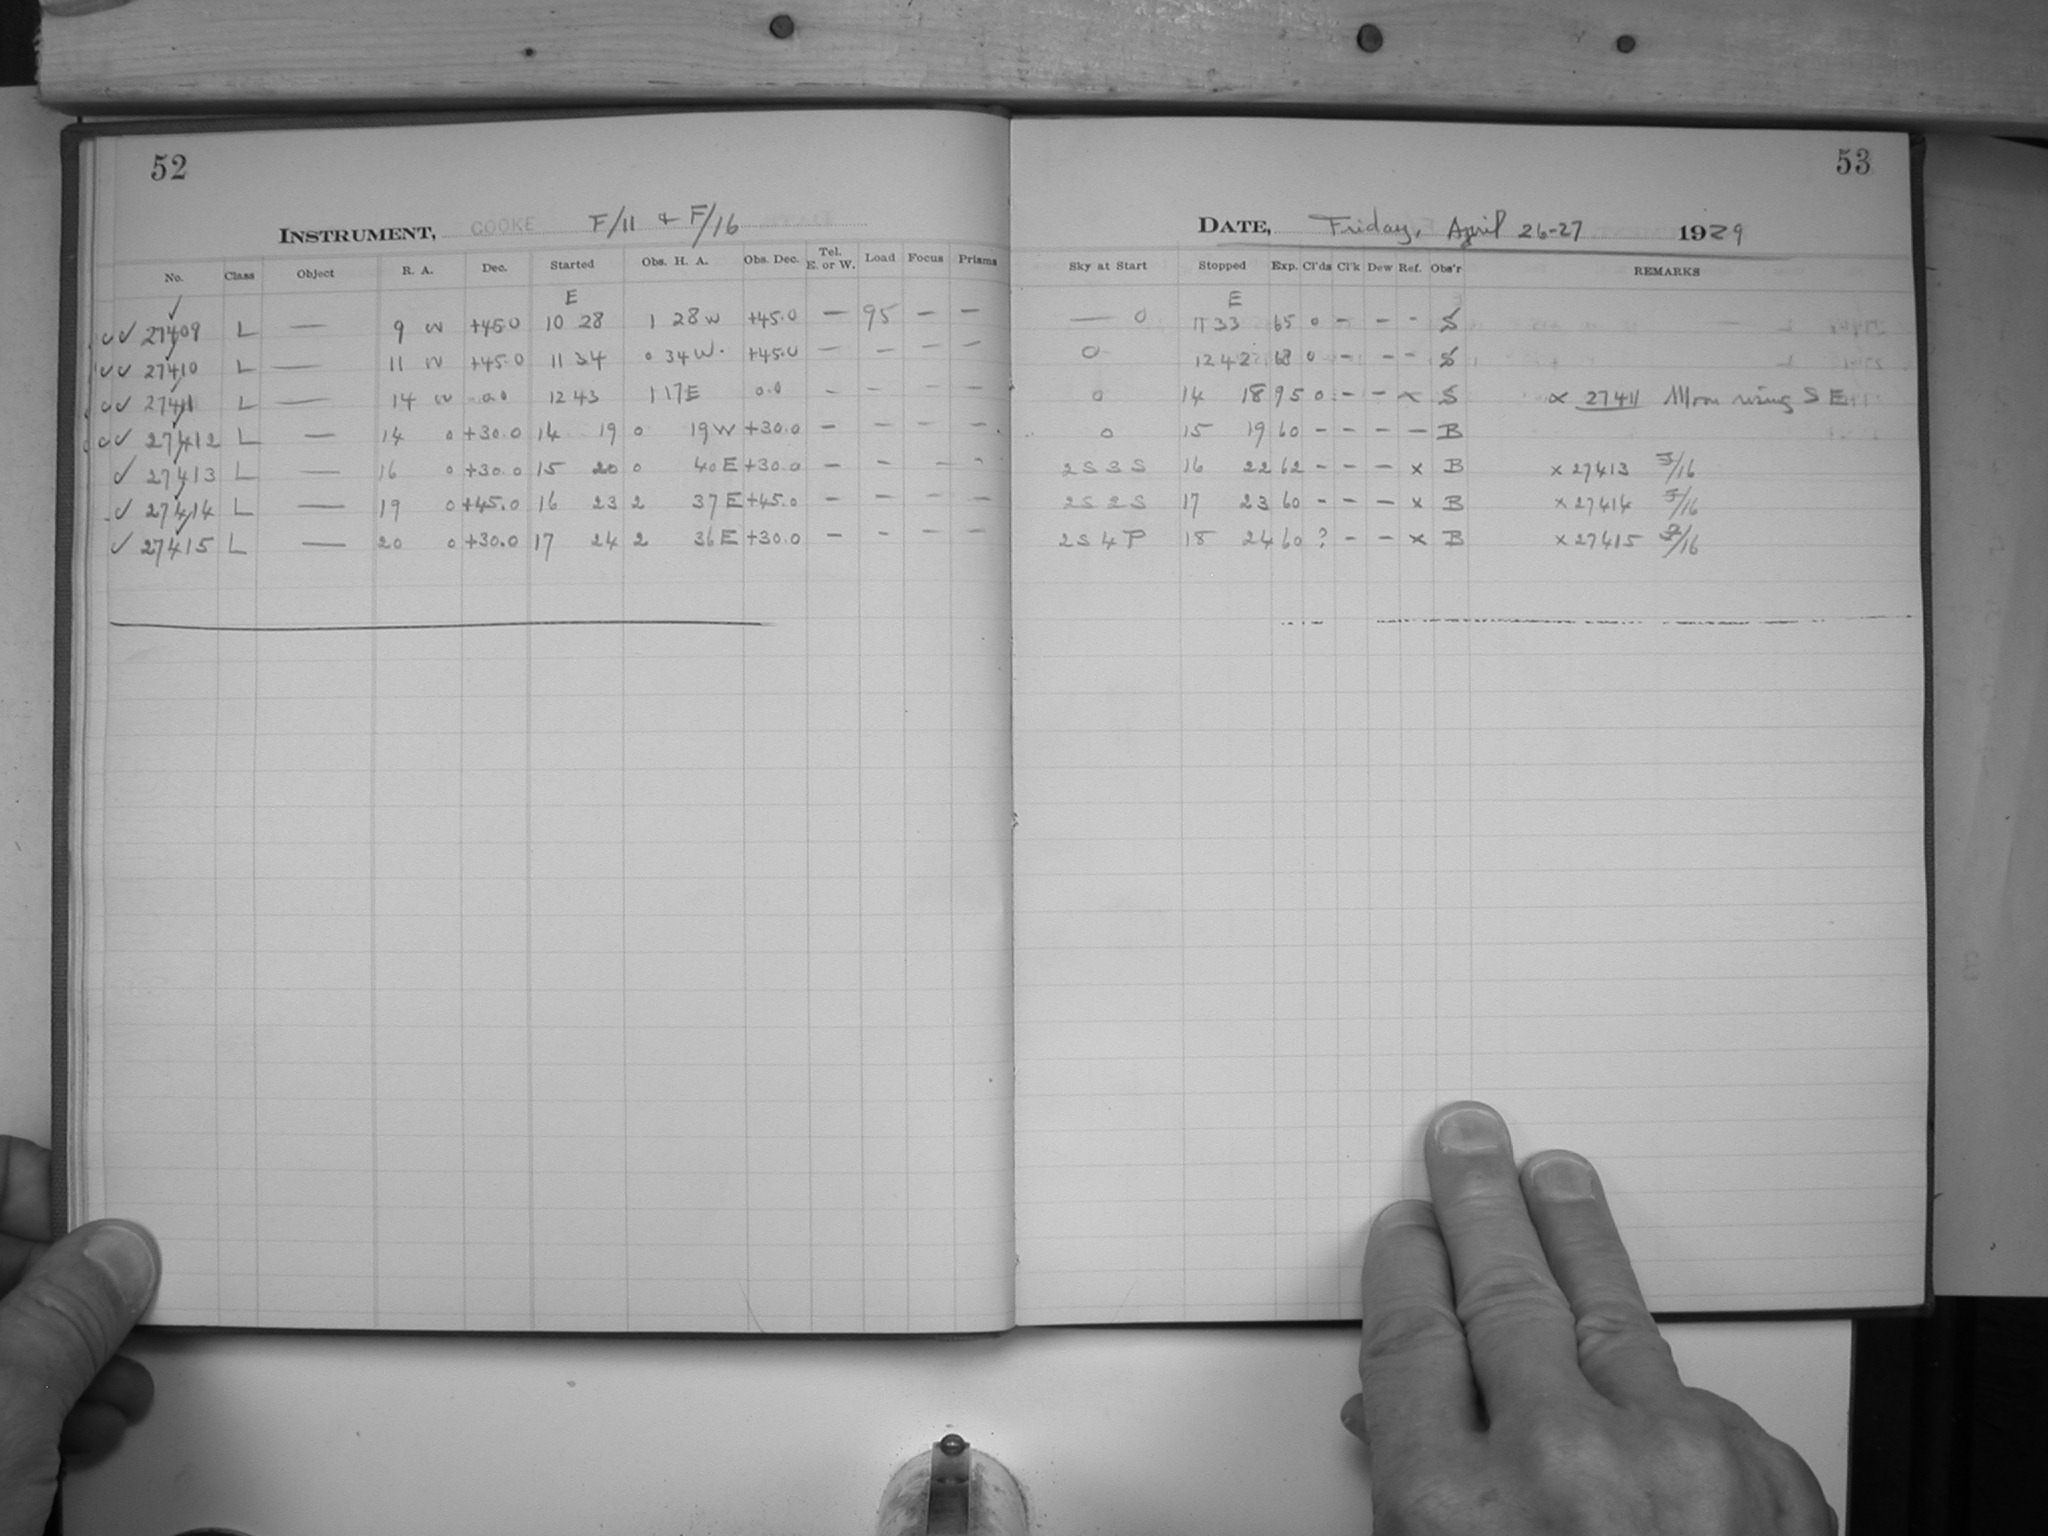 52
INSTRUMENT, COOKE F/11 & F/16
No. Class Object R. A. Dec. Started Obs. H. A. Obs. Dec. Tel. E. or W. Load Focus Prisms
E
✓✓ 27409 L — 9 w +45.0 10 28 1 28 w +45.0 — 95 — —
✓✓ 27410 L — 11 w +45.0 11 34 0 34 W. +45.0 — — — —
✓✓ 27411 L — 14 w 0.0 12 43 1 17 E 0.0 — — — —
✓✓ 27412 L — 14 0 +30.0 14 19 0 19 W +30.0 — — — —
✓ 27413 L — 16 0 +30.0 15 20 0 40 E +30.0 — — — -
✓ 27414 L — 19 0 +45.0 16 23 2 37 E +45.0 — — — —
✓ 27415 L — 20 0 +30.0 17 24 2 36 E +30.0 — — — —
53
DATE, Friday, April 26-27 1929
Sky at Start Stopped Exp. Cl'ds Cl'k Dew Ref. Obs'r REMARKS
E
— 0 11 33 65 0 - - - S
0 12 42 68 0 - - - S
0 14 18 95 0 - - x S x 27411 Moon rising S E
0 15 19 60 - - - — B
2 S 3 S 16 22 62 - - - x B x 27413 F/16
2 S 2 S 17 23 60 - - - x B x 27414 F/16
2 S 4 P 18 24 60 ? - - x B x 27415 F/16